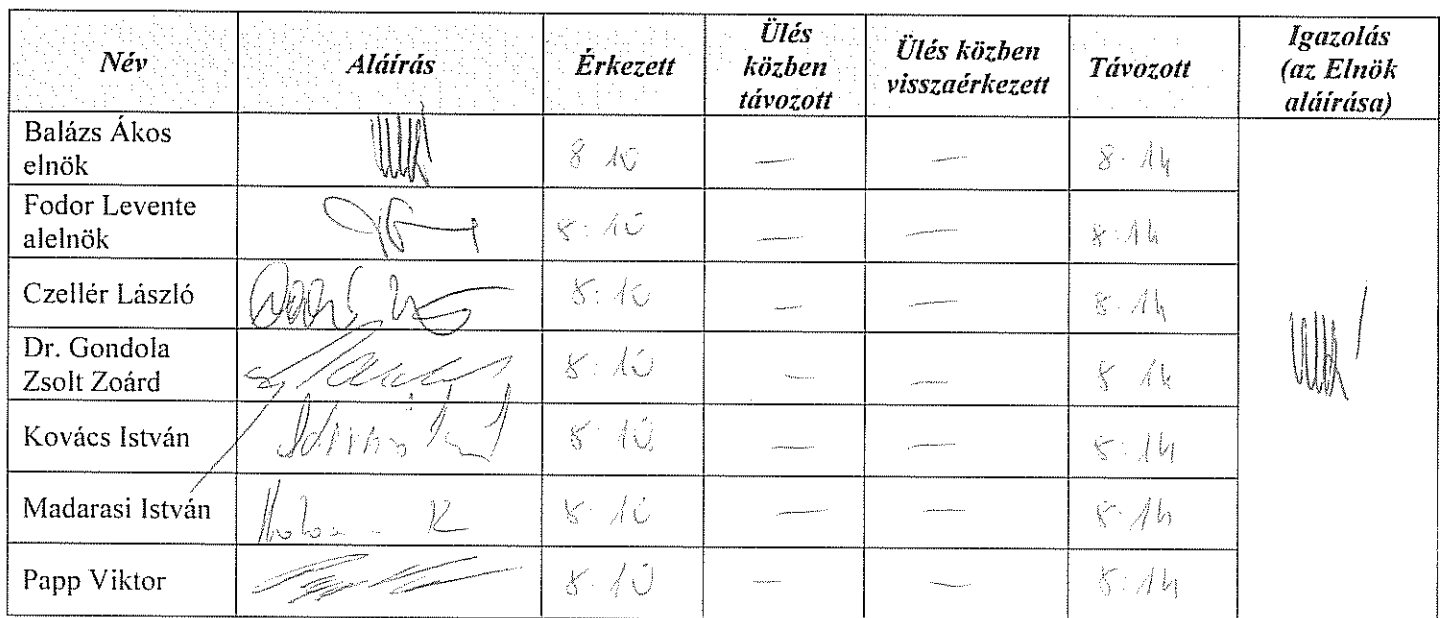 Név Aláírás Érkezett Ülés közben távozott Ülés közben visszaérkezett Távozott Igazolás (az Elnök aláírása)
Balázs Ákos elnök 8 10 — — 8.14
Fodor Levente alelnök 8:10 — — 8:14
Czellér László 8:10 — — 8.14
Dr. Gondola Zsolt Zoárd 8:10 — — 8 14
Kovács István 8:10 — — 8:14
Madarasi István 8.10 — — 8.14
Papp Viktor 8.10 — — 8:14